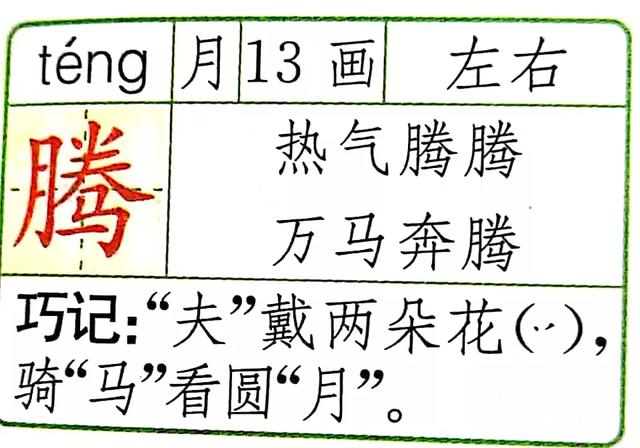 téng 月 13 画 左右
腾
热气腾腾
万马奔腾
巧记：“夫”戴两朵花(丷)，
骑“马”看圆“月”。